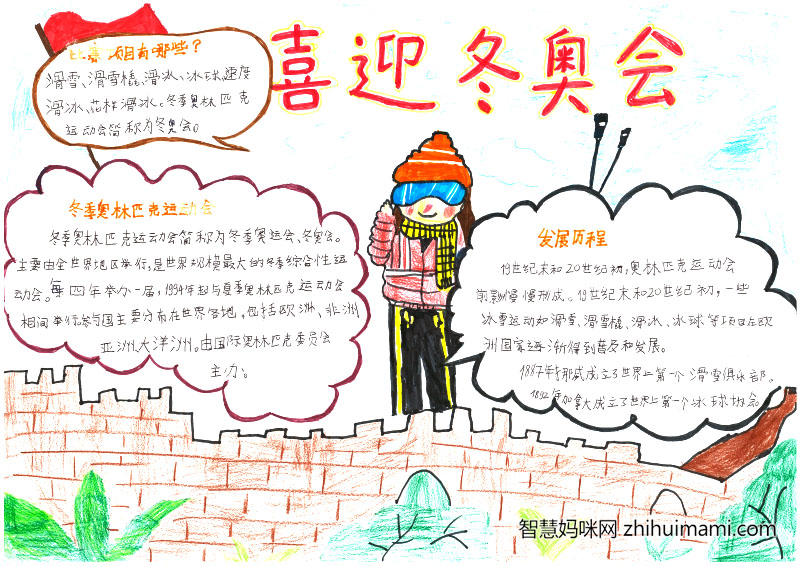 喜迎冬奥会
比赛项目有哪些？
滑雪、滑雪橇、滑冰、冰球、速度
滑冰、花样滑冰。冬季奥林匹克
运动会简称为冬奥会。
冬季奥林匹克运动会
冬季奥林匹克运动会简称为冬季奥运会、冬奥会。
主要由全世界地区举行，是世界规模最大的冬季综合性运
动会。每四年举办一届，1994年起与夏季奥林匹克运动会
相间举行。参与国主要分布在世界各地，包括欧洲、非洲
亚洲、大洋洲。由国际奥林匹克委员会
主办。
发展历程
19世纪末和20世纪初，奥林匹克运动会
慢慢形成。19世纪末和20世纪初，一些
冰雪运动如滑雪、滑雪橇、滑冰、冰球等项目在欧
洲国家逐渐得到普及和发展。
1887年挪威成立了世界上第一个滑雪俱乐部。
1892年加拿大成立了世界上第一个冰球协会。
智慧妈咪网 zhihuimami.com